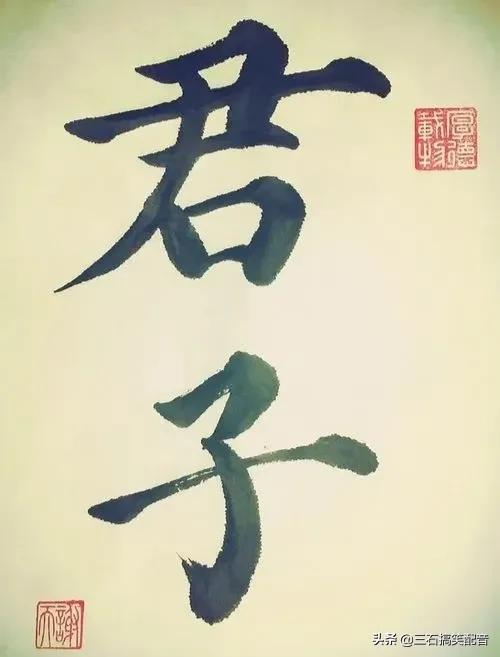 君子
厚德載物
頭条 @三石搞笑配音